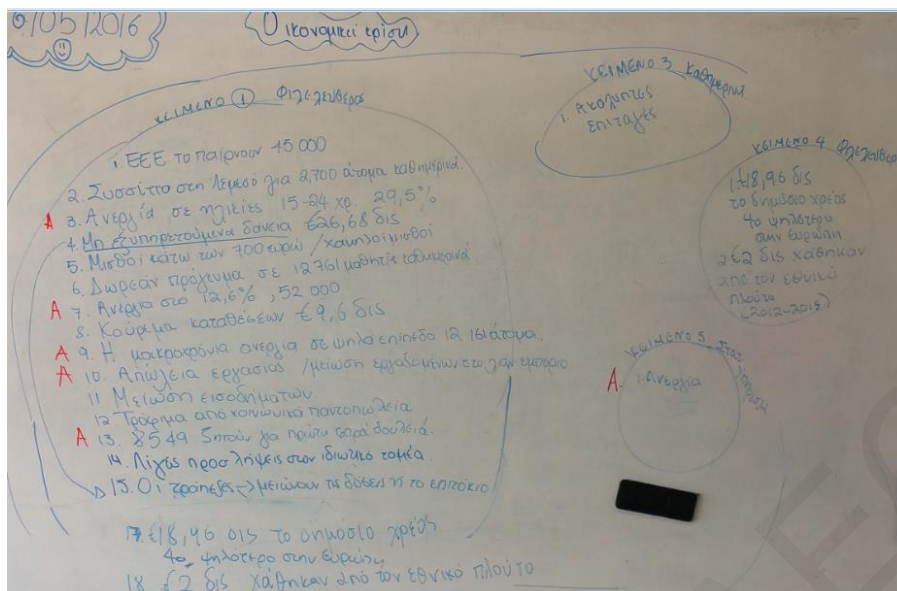 9/05/2016
Οικονομική κρίση
ΚΕΙΜΕΝΟ 1 Φιλελεύθερος
1. ΕΕΕ το παίρνουν 45 000
2. Συσσίτιο στη Λεμεσό για 2,700 άτομα καθημερινά.
Α 3. Ανεργία σε ηλικίες 15-24 χρ. 29,5%
4. Μη εξυπηρετούμενα δάνεια €26,68 δις
5. Μισθοί κάτω των 700 ευρώ / χαμηλοί μισθοί
6. Δωρεάν πρόγευμα σε 12761 μαθητές καθημερινά.
Α 7. Ανεργία στο 12,6%, 52 000
8. Κούρεμα καταθέσεων €9,6 δις
Α 9. Η μακροχρόνια ανεργία σε ψηλά επίπεδο 12 161 άτομα.
Α 10. Απώλεια εργασίας / μείωση εργαζομένων στο λιαν. εμπόριο
11 Μείωση εισοδημάτων
12 Τρόφιμα από κοινωνικά παντοπωλεία
Α 13. 8549 ζητούν για πρώτη φορά δουλειά.
14. Λίγες προσλήψεις στον ιδιωτικό τομέα.
15. Οι τράπεζες → μειώνουν τις δόσεις ή το επιτόκιο
17. €18,96 δις το δημόσιο χρέος
4ο ψηλότερο στην Ευρώπη
18. €2 δις χάθηκαν από τον εθνικό πλούτο
ΚΕΙΜΕΝΟ 3 Καθημερινή
1. Ακάλυπτες
επιταγές
ΚΕΙΜΕΝΟ 4 Φιλελεύθερος
1. €18,96 δις
το δημόσιο χρέος
4ο ψηλότερο
στην Ευρώπη
2 €2 δις χάθηκαν
από τον εθνικό
πλούτο
(2012-2015)
ΚΕΙΜΕΝΟ 5
Α. 1. Ανεργία